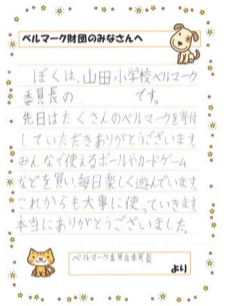 ベルマーク財団のみなさんへ
ぼくは、山田小学校ベルマーク
委員長の　　　　です。
先日はたくさんのベルマークを寄付
していただきありがとうございます。
みんなで使えるボールやカードゲーム
などを買い、毎日楽しく遊んでいます。
これからも大事に使っていきます。
本当にありがとうございました。
ベルマーク委員会委員長
より